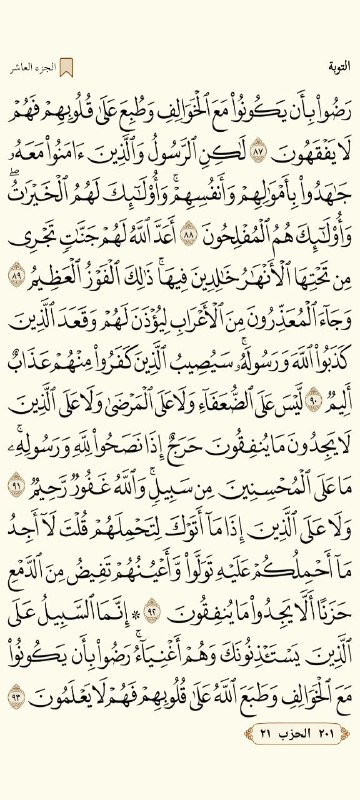 التوبة
الجزء العاشر
رَضُوا۟ بِأَن يَكُونُوا۟ مَعَ ٱلْخَوَالِفِ وَطُبِعَ عَلَىٰ قُلُوبِهِمْ فَهُمْ
لَا يَفْقَهُونَ ٨٧ لَٰكِنِ ٱلرَّسُولُ وَٱلَّذِينَ ءَامَنُوا۟ مَعَهُۥ
جَٰهَدُوا۟ بِأَمْوَٰلِهِمْ وَأَنفُسِهِمْ ۚ وَأُو۟لَٰٓئِكَ لَهُمُ ٱلْخَيْرَٰتُ ۖ
وَأُو۟لَٰٓئِكَ هُمُ ٱلْمُفْلِحُونَ ٨٨ أَعَدَّ ٱللَّهُ لَهُمْ جَنَّٰتٍ تَجْرِى
مِن تَحْتِهَا ٱلْأَنْهَٰرُ خَٰلِدِينَ فِيهَا ۚ ذَٰلِكَ ٱلْفَوْزُ ٱلْعَظِيمُ ٨٩
وَجَآءَ ٱلْمُعَذِّرُونَ مِنَ ٱلْأَعْرَابِ لِيُؤْذَنَ لَهُمْ وَقَعَدَ ٱلَّذِينَ
كَذَبُوا۟ ٱللَّهَ وَرَسُولَهُۥ ۚ سَيُصِيبُ ٱلَّذِينَ كَفَرُوا۟ مِنْهُمْ عَذَابٌ
أَلِيمٌ ٩٠ لَّيْسَ عَلَى ٱلضُّعَفَآءِ وَلَا عَلَى ٱلْمَرْضَىٰ وَلَا عَلَى ٱلَّذِينَ
لَا يَجِدُونَ مَا يُنفِقُونَ حَرَجٌ إِذَا نَصَحُوا۟ لِلَّهِ وَرَسُولِهِۦ ۚ
مَا عَلَى ٱلْمُحْسِنِينَ مِن سَبِيلٍ ۚ وَٱللَّهُ غَفُورٌ رَّحِيمٌ ٩١
وَلَا عَلَى ٱلَّذِينَ إِذَا مَآ أَتَوْكَ لِتَحْمِلَهُمْ قُلْتَ لَآ أَجِدُ
مَآ أَحْمِلُكُمْ عَلَيْهِ تَوَلَّوا۟ وَّأَعْيُنُهُمْ تَفِيضُ مِنَ ٱلدَّمْعِ
حَزَنًا أَلَّا يَجِدُوا۟ مَا يُنفِقُونَ ٩٢ ۞ إِنَّمَا ٱلسَّبِيلُ عَلَى
ٱلَّذِينَ يَسْتَـْٔذِنُونَكَ وَهُمْ أَغْنِيَآءُ ۚ رَضُوا۟ بِأَن يَكُونُوا۟
مَعَ ٱلْخَوَالِفِ وَطَبَعَ ٱللَّهُ عَلَىٰ قُلُوبِهِمْ فَهُمْ لَا يَعْلَمُونَ ٩٣
٢٠١ الحزب ٢١